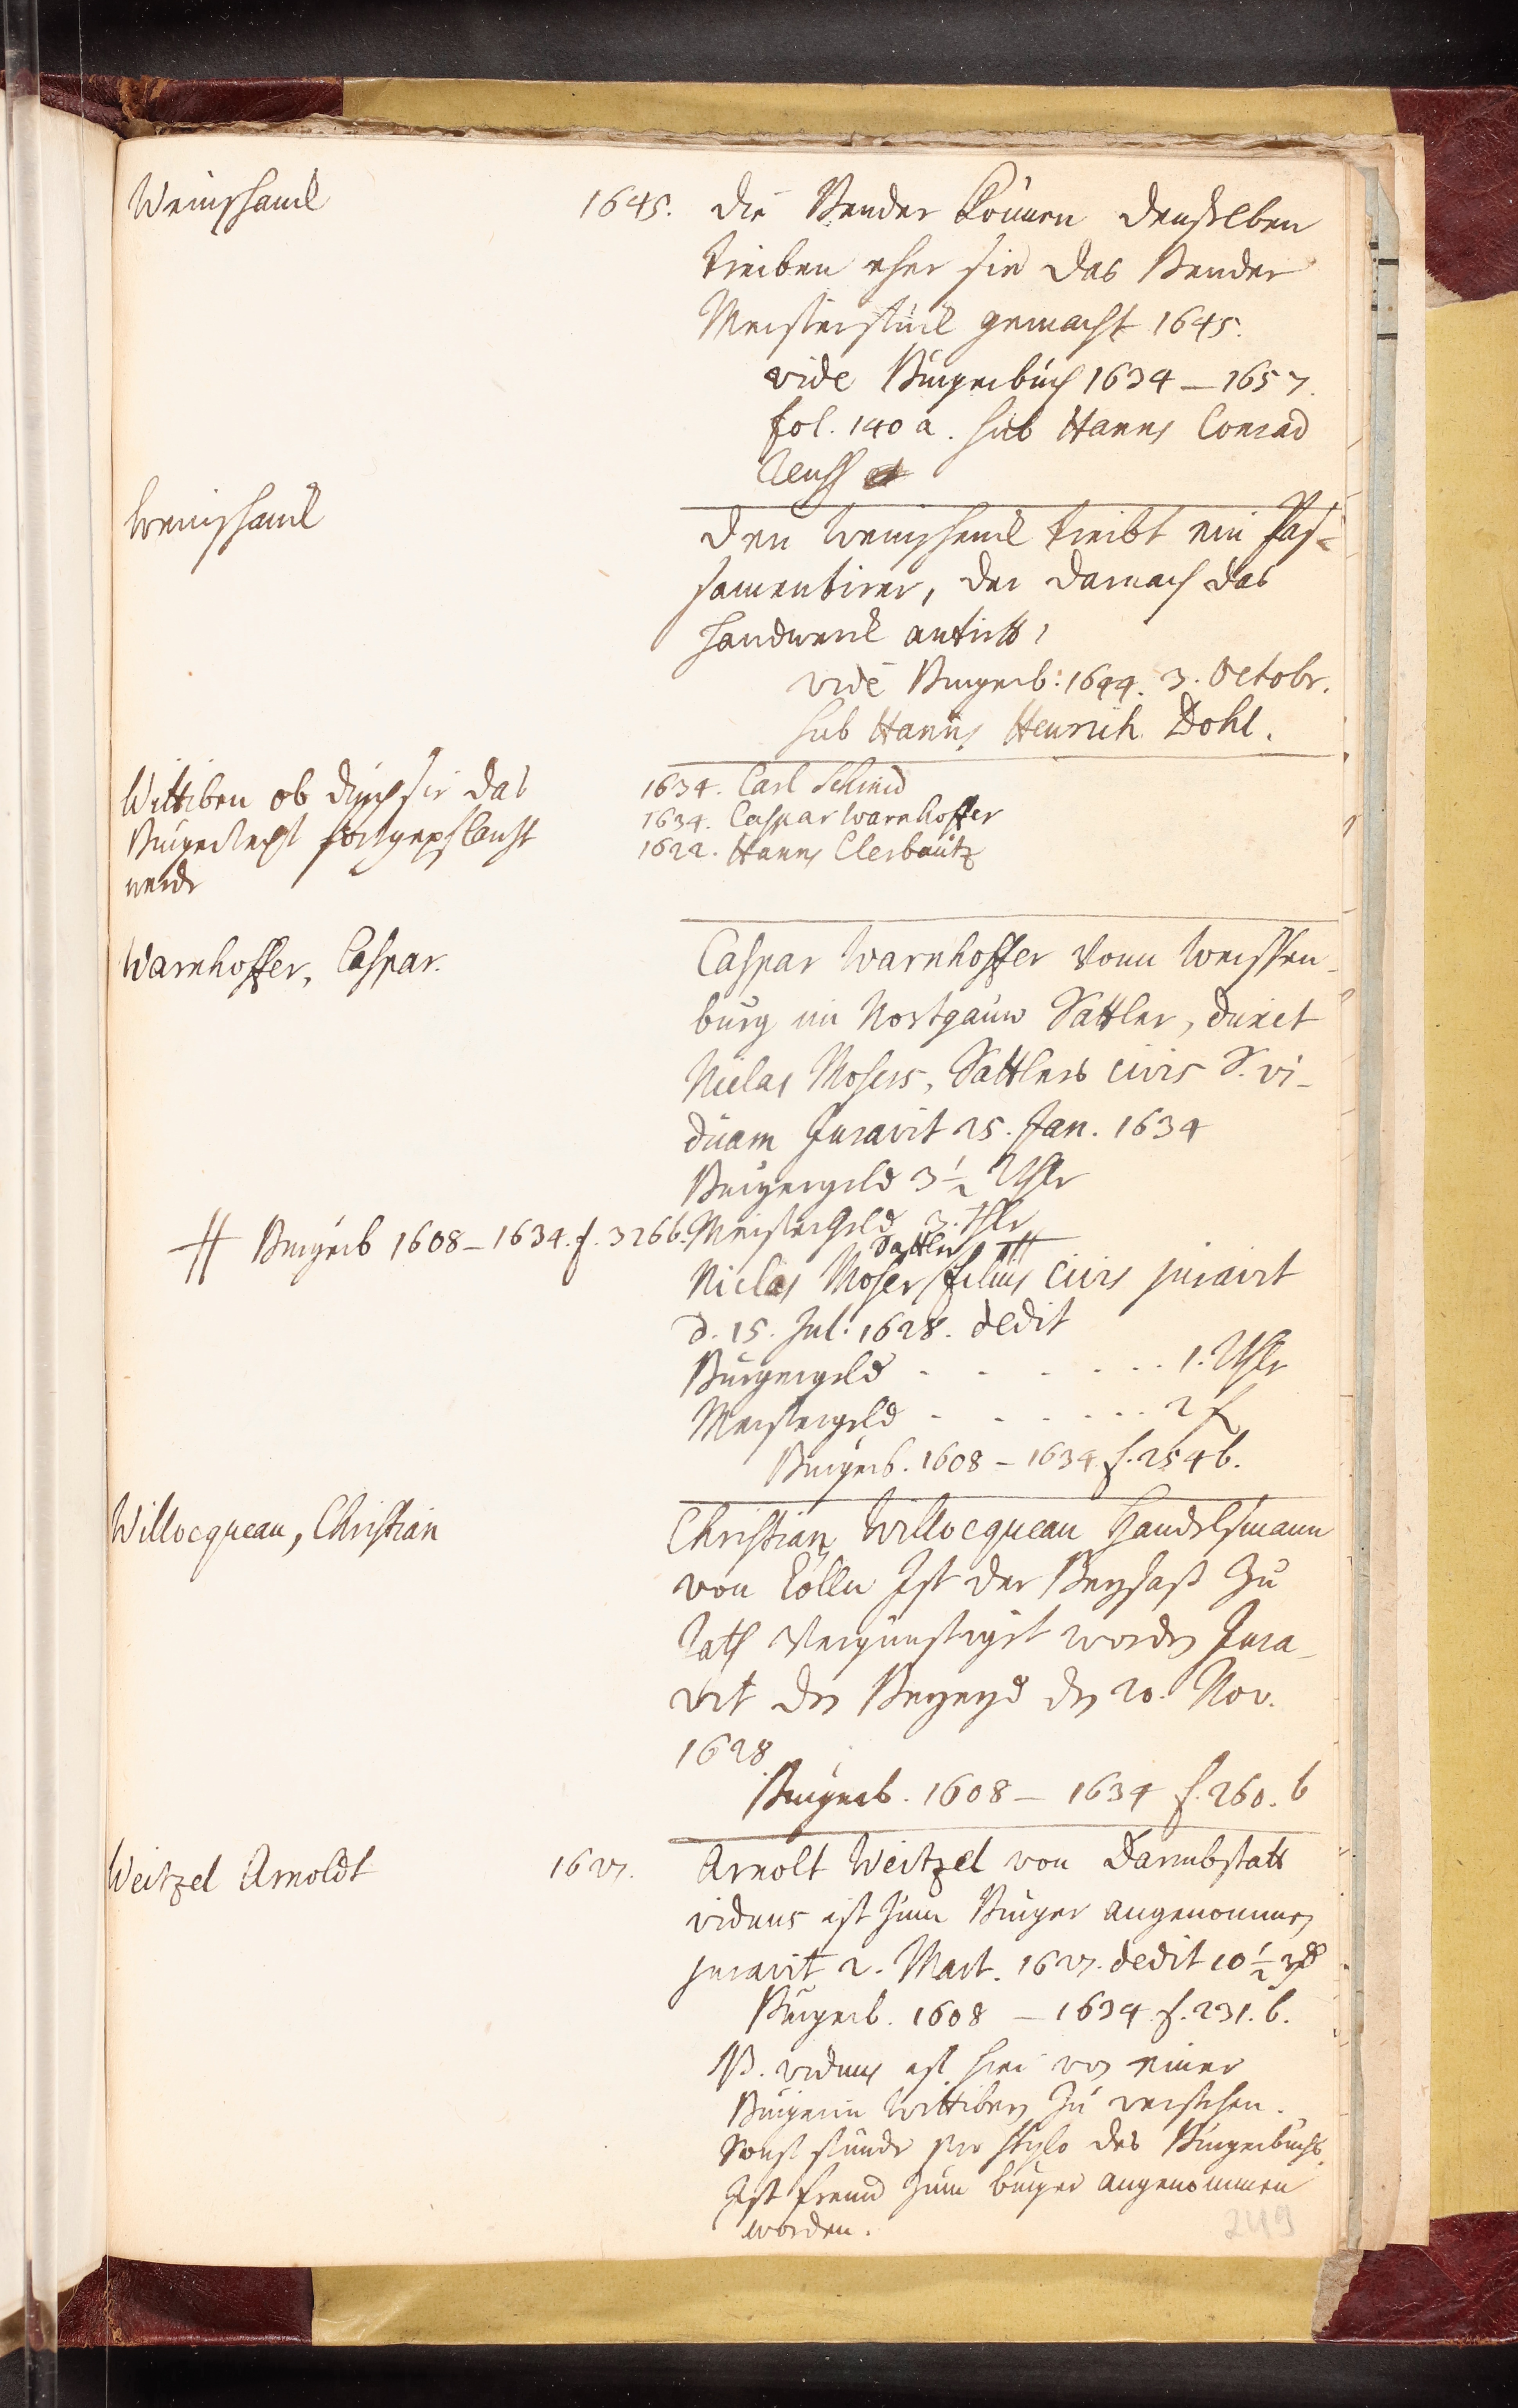 Weinschanck
1645. Die Bender können denselben
treiben eher sie das Bender
Meisterstück gemacht 1645.
vide Bürgerbuch 1634 – 1657.
fol. 140 a. sub Hanns Conrad
Weinschanck
Den Weinschanck treibt ein Pas-
samentirer, der darnach das
Handwerck antritt,
vide Burgerb: 1644. 3. Octobr.
sub Hanns Henrich Dohl.
Wittiben ob durch sie das
Bürgerrecht fortgepflantzt
werde
1634. Carl Schmid
1634. Caspar Warnhoffer
1622. Hanns Clerbautz
Warnhoffer, Caspar.
Caspar Warnhoffer vonn Weissen-
burg im Nortgauw Sattler, duxit
Niclas Mosers, Sattlers civis S. vi-
duam Juravit 25. Jan. 1634
Burgergeld 3 1/2 Thlr
Meistergeld 3. Thlr
# Burgerb 1608 – 1634. f. 326 b.
Niclas Moser Sattler / filius civis juravit #
d. 15. Jul: 1628. dedit
Bürgergeld - - - - - - 1. Thlr
Meistergeld - - - - - - 2 f
Burgerb. 1608 – 1634. f. 254 b.
Willocqueau, Christian
Christian Willocqueau Handelsmann
von Cölln Ist der Beysaß zu
Rath Vergünstiget worden Jura-
vit den Beyeyd den 20. Nov.
1628.
Burgerb. 1608 – 1634 f. 260. b
Weitzel Arnoldt
1627. Arnolt Weitzel von Darmbstatt
viduus ist zum Burger angenommen
juravit 2. Mart. 1627. dedit 10 1/2
Burgerb. 1608 – 1634. f. 231. b.
NB. viduus ist hier von einer
Burgerin Wittiben zu verstehen.
Sonst stünde pro stylo des Bürgerbuchs.
Ist fremd zum burger angenommen
worden.
249